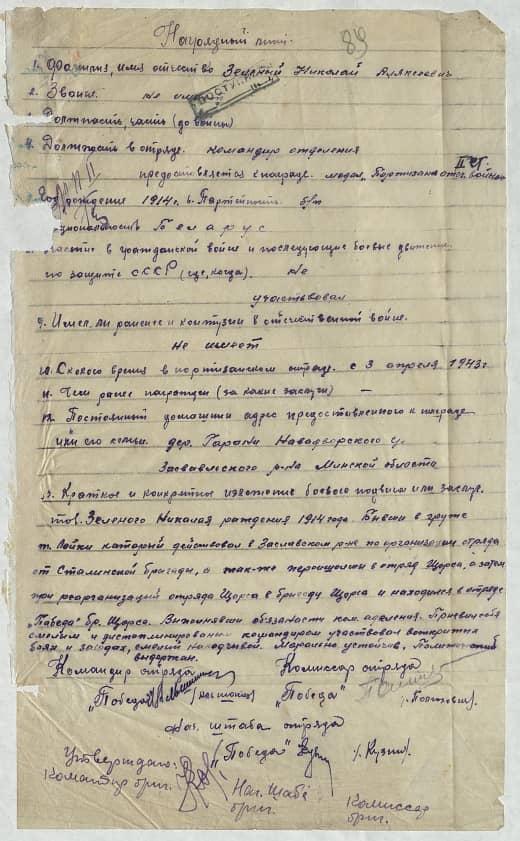 Наградной лист.
89
1. Фамилия, имя отчество Зелёный Николай Алексеевич
2. Звание. не им
ПОСТУ
Должность, часть (до войны)
4. Должность в отряде. командир отделения
II ст.
предоставляется к награде. медал. Партизана отеч. войны
Год рождения 1914 г. 6. Партейность б/п
ациональность Беларус
частие в гражданской войне и последующие боевые
по защите СССР (где, когда). Не
участвовал
9. Имел, ли ранение и контузии в отечественной войне.
не имеет
10. Сколько время в партизанском отряде. с 3 апреля 1943 г
11. Чем ранее награжден (за какие заслуги) —
12. Постоянный домашний адрес предоставленного к награде
или его семьи. дер. Гарани Навадворского
Заславльского р-на Минской области
13. Краткое и конкретное изложение боевого подвига или заслуг.
тов. Зеленого Николая рождения 1914 года. Бывши в групе
т. Лойки каторый действовал в Заславском р-не по организации отряда
от Сталинской бригады, а так-же перешошли в отряд Щорса, а затем
при реорганизаций отряда Щорса в бригаду Щорса и находился в отряде
"Победа" бр. Щорса. обязаности ком. аделения.
смелым и командиром участвовал воткритых
боях и засадах, смелый находчивый. Марально устойчив,
выдержан.
Командир отряда Комиссар отряда
"Победа" "Победа"
Нач. штаба отряда
"Победа" /. Кузин/.
Утверждаю:
Командир бриг. Нач. Штаба Комиссар
бриг. бриг.